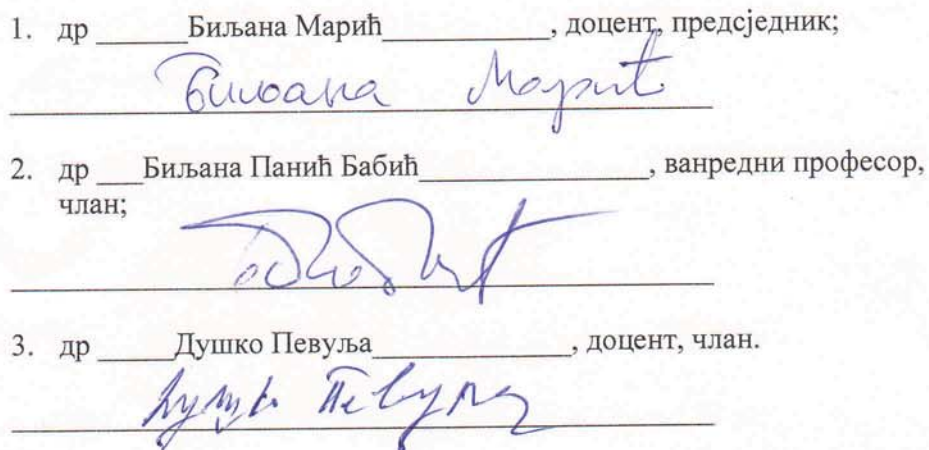 1. др ______Биљана Марић___________, доцент, предсједник;
Биљана Марић
2. др ___Биљана Панић Бабић_______________, ванредни професор,
члан;
3. др _____Душко Певуља_____________, доцент, члан.
Душко Певуља